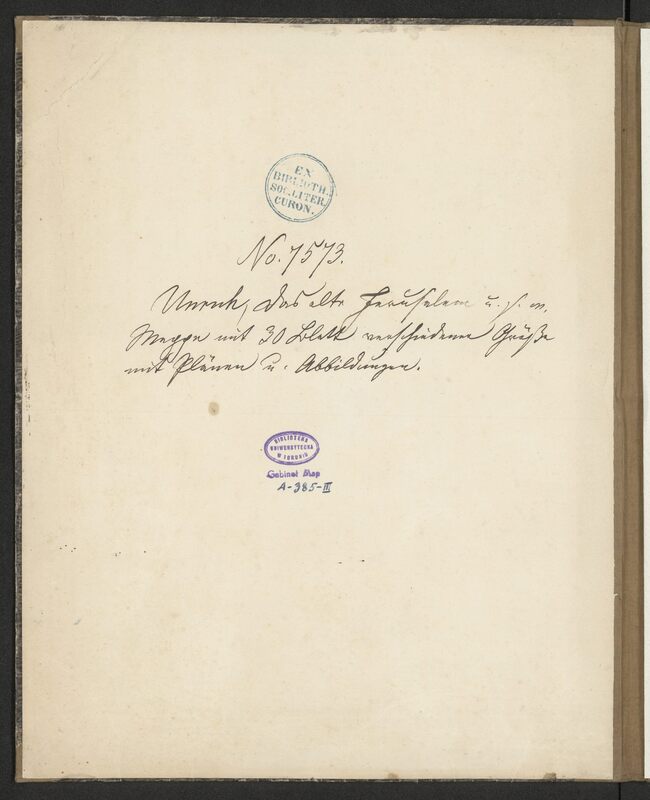 EX
BIBLIOTH.
SOC. LITER.
CURON.
No. 7573.
Unruh, das alte Jerusalem u. s. w.
Mappe mit 30 Blatt verschiedener Größe
mit Plänen u. Abbildungen.
BIBLIOTEKA
UNIWERSYTECKA
W TORUNIU
Gabinet Map
A-385-III